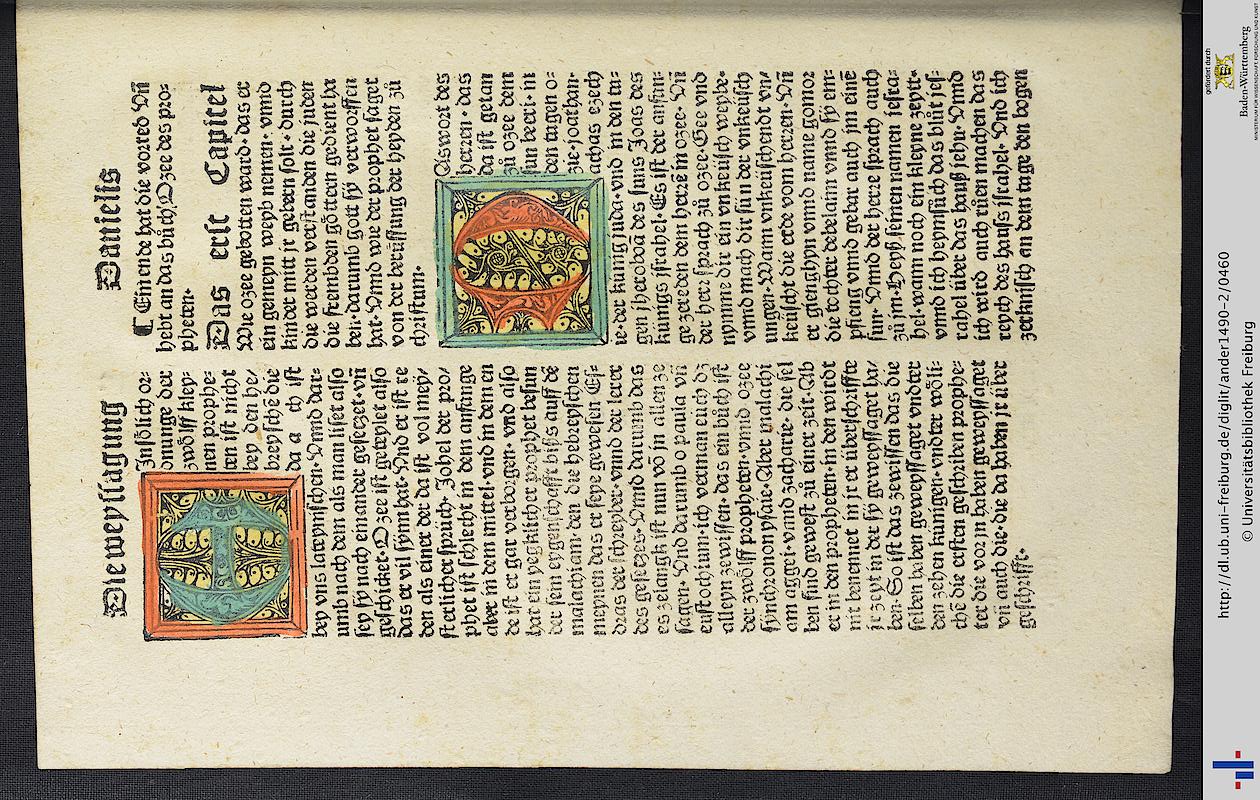 Die weyssagung
Danielis
Insölich or-
dnunge der
zwölff kley-
nen prophe-
ten ist nicht
bey den he/
breyschē die
da ist
bey vns lateynischen. Vnnd dar-
umb nach dem als man liset also
sey sy nach einander gesetzet. vn̄
geschicket. Ozee ist geteylet also
das er vil synn hat. Vnd er ist re
den als einer der da ist vol mey/
sterlicher sprüch. Johel der pro/
phet ist schlecht in dem anfange
aber in dem mittel. vnd in dem en
de ist er gar verborgen. vnd also
hatt ein yegklicher prophet besun
der sein eygenschafft biß auff dē
malachiam. den die hebreyschen
meynen das er seye gewesen Es-
dras der schreyber. vnnd der lerer
des gesetzes. Vnd darumb das
es zelangk ist nun vō in allen ze
sagen. Vnd darumb o paula vn̄
eustochium. ich verman euch dz
alleyn zewissen das ein bůch ist
der zwölff propheten. vnnd ozee
synchronon ysaie. Aber malachi
am aggei. vnnd zacharie. die sel
ben sind gewest zů einer zeit. Ab
er in den propheten. in den wirdt
nit benennet in ir er überschriffte
ir zeyt in der sy geweyssaget ha/
ben. So ist das zewissen das die
selben haben geweyssaget vndter
den zehen künigen. vndter wöli-
chē die ersten geschriben prophe-
ter die vor in haben geweyssaget
vn̄ auch die. die da haben ir über
geschrifft.
¶ Ein ende hat die vorred Vn̄
hebt an das bůch Ozee des pro-
pheten.
Das erst Capitel
Wie ozee gebotten ward. das er
ein gemeyn weyb nemen. vnnd
kinder mitt ir geberen solt. durch
die werden verstanden die juden
die frembden göttern gedient ha
ben. darumb gott sy verworffen
hat. Vnnd wie der prophet saget
von der berüffung der heyden zů
christum.
Aswort des
herren. das
da ist getan
zů ozee dem
sun beeri. in
den tagen o-
zie joathan.
achas ezech
ie. der künig juda. vnd in den ta-
gen jheroboā des suns Joas des
künigs jsrahel. Es ist der anfan-
ge zereden dem herrē in ozee. Vn̄
der herr sprach zů ozee. Gee vnd
nymme dir ein vnkeüsch weybe.
vnnd mach dir sün der vnkeüsch
ungen. Wann vnkeüschendt vn/
keüscht die erde vom herren. Vn̄
er gienghyn vnnd name gomor
die tochter debelaim vnnd sy em-
pfieng vnnd gebar auch jm einē
sun. Vnnd der herre sprach auch
zů jm. Heyß seinen namen jesra-
hel. wann noch ein kleyne zeyt.
vnnd ich heymsůch das blůt jes-
rahel über das hauß jehu. Vnnd
ich wird auch růen machen das
reych des hauß jsrahel. Vnd ich
zerknisch an dem tage den bogen
gefördert durch
Baden-Württemberg
MINISTERIUM FÜR WISSENSCHAFT, FORSCHUNG UND KUNST
http://dl.ub.uni-freiburg.de/diglit/ander1490-2/0460
© Universitätsbibliothek Freiburg